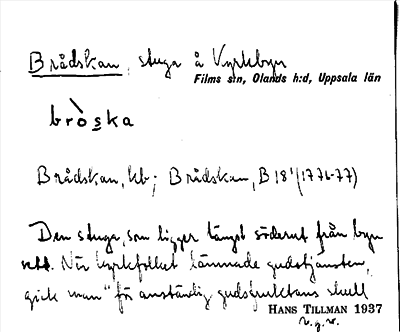 Brådskan, stuga å Kyrkbyn
Films s:n, Olands h:d, Uppsala län
bròska
Brådskan, kb; Brådskan, B 18¹ (1776-77)
Den stuga, som ligger längst söderut från byn
När kyrkfolket lämnade gudstjänsten,
gick man "för anständig gudsfruktans skull
HANS TILLMAN 1937
v.g.v.